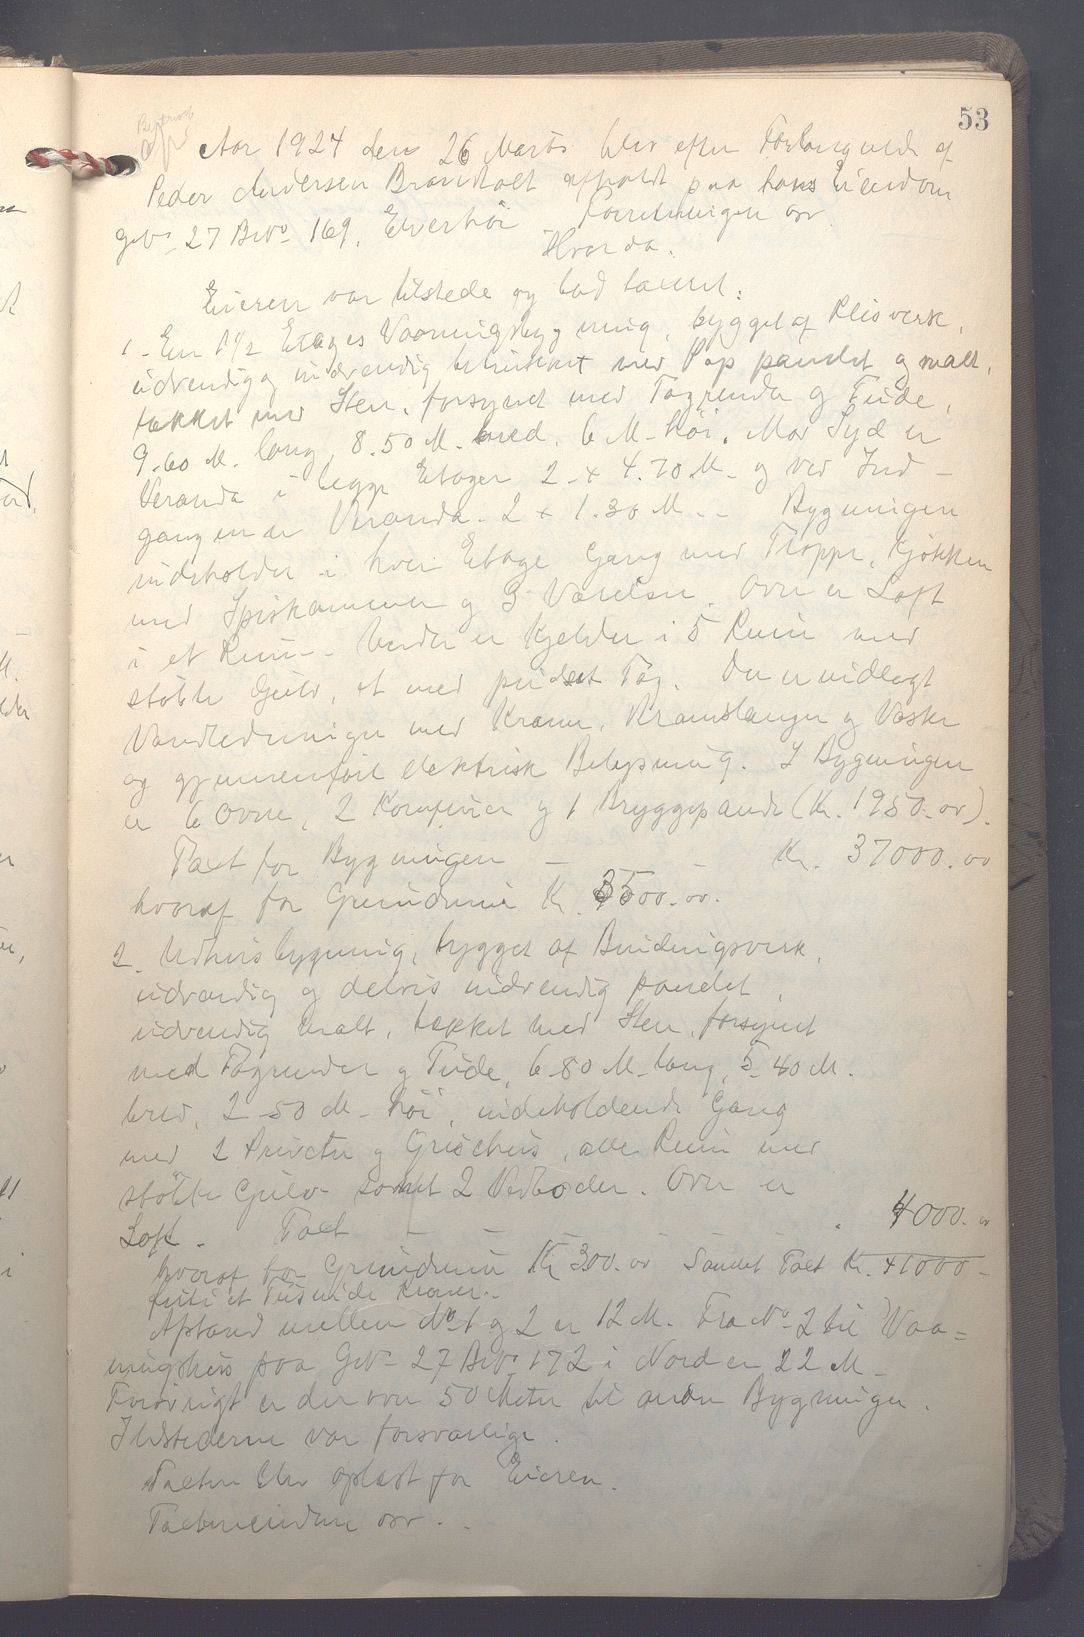 53
Aar 1924 den 26 Marts blev efter Forlangende af
Peder Andersen Brandholt afholdt paa hans Eiendom
gno 27 Bno 169, Elverhöi Forretningen osv
Hvorda.
Eieren var tilstede og lod taxeret:
1. En 1 1/2 Etages Vaaningsbygning, bygget af Reisverk,
udvendig og indvendig betrukket med Pap panelet og malt,
tækket med Sten, forsynet med Tagrender og Tude,
9.60 M. lang, 8.50 M. bred, 6 M. höi. Mod Syd er
Veranda i begge Etager 2 x 4.70 M. og ved Ind-
gangen er Veranda. 2 x 1.30 M. - Bygningen
indeholder i hver Etage Gang med Trappe, Kjökken
med Spiskammer og 3 Værelser. Over er Loft
i et Rum. Under er Kjelder i 5 Rum med
stöbte Gulv, et med pudset Tag. Der er indlagt
Vandledninger med Kraner, Kranslanger og Vaske
og gjennemfört elektrisk Belysning. I Bygningen
er 6 Ovne, 2 Komfurer og 1 Bryggepande (Kr. 1950.00).
Taxt for Bygningen - - Kr. 37000.00
hvoraf for Grundmur Kr. 3500.00.
2. Udhusbygning, bygget af Bindingsverk,
udvendig og delvis indvendig panelet,
udvendig malt, tækket med Sten, forsynet
med Tagrender og Tude, 6.80 M. lang, 5.40 M.
bred, 2.50 M. höi, indeholdende Gang
med 2 Priveter og Grisehus, alle Rum med
stöbte Gulv samt 2 Vedboder. Over er
Loft. Taxt - - 4000.00
hvoraf for Grundmur Kr 300.00 Samlet Taxt Kr. 41000 -
firti et Tusinde Kroner.
Afstand mellem No 1 og 2 er 12 M. Fra No 2 til Vaa=
ningshus paa Gno 27 Bno 172 i Nord er 22 M.
Forövrigt er der over 50 Meter til andre Bygninger.
Ildstederne var forsvarlige.
Taxten blev oplæst for Eieren.
Taxtmændene osv.